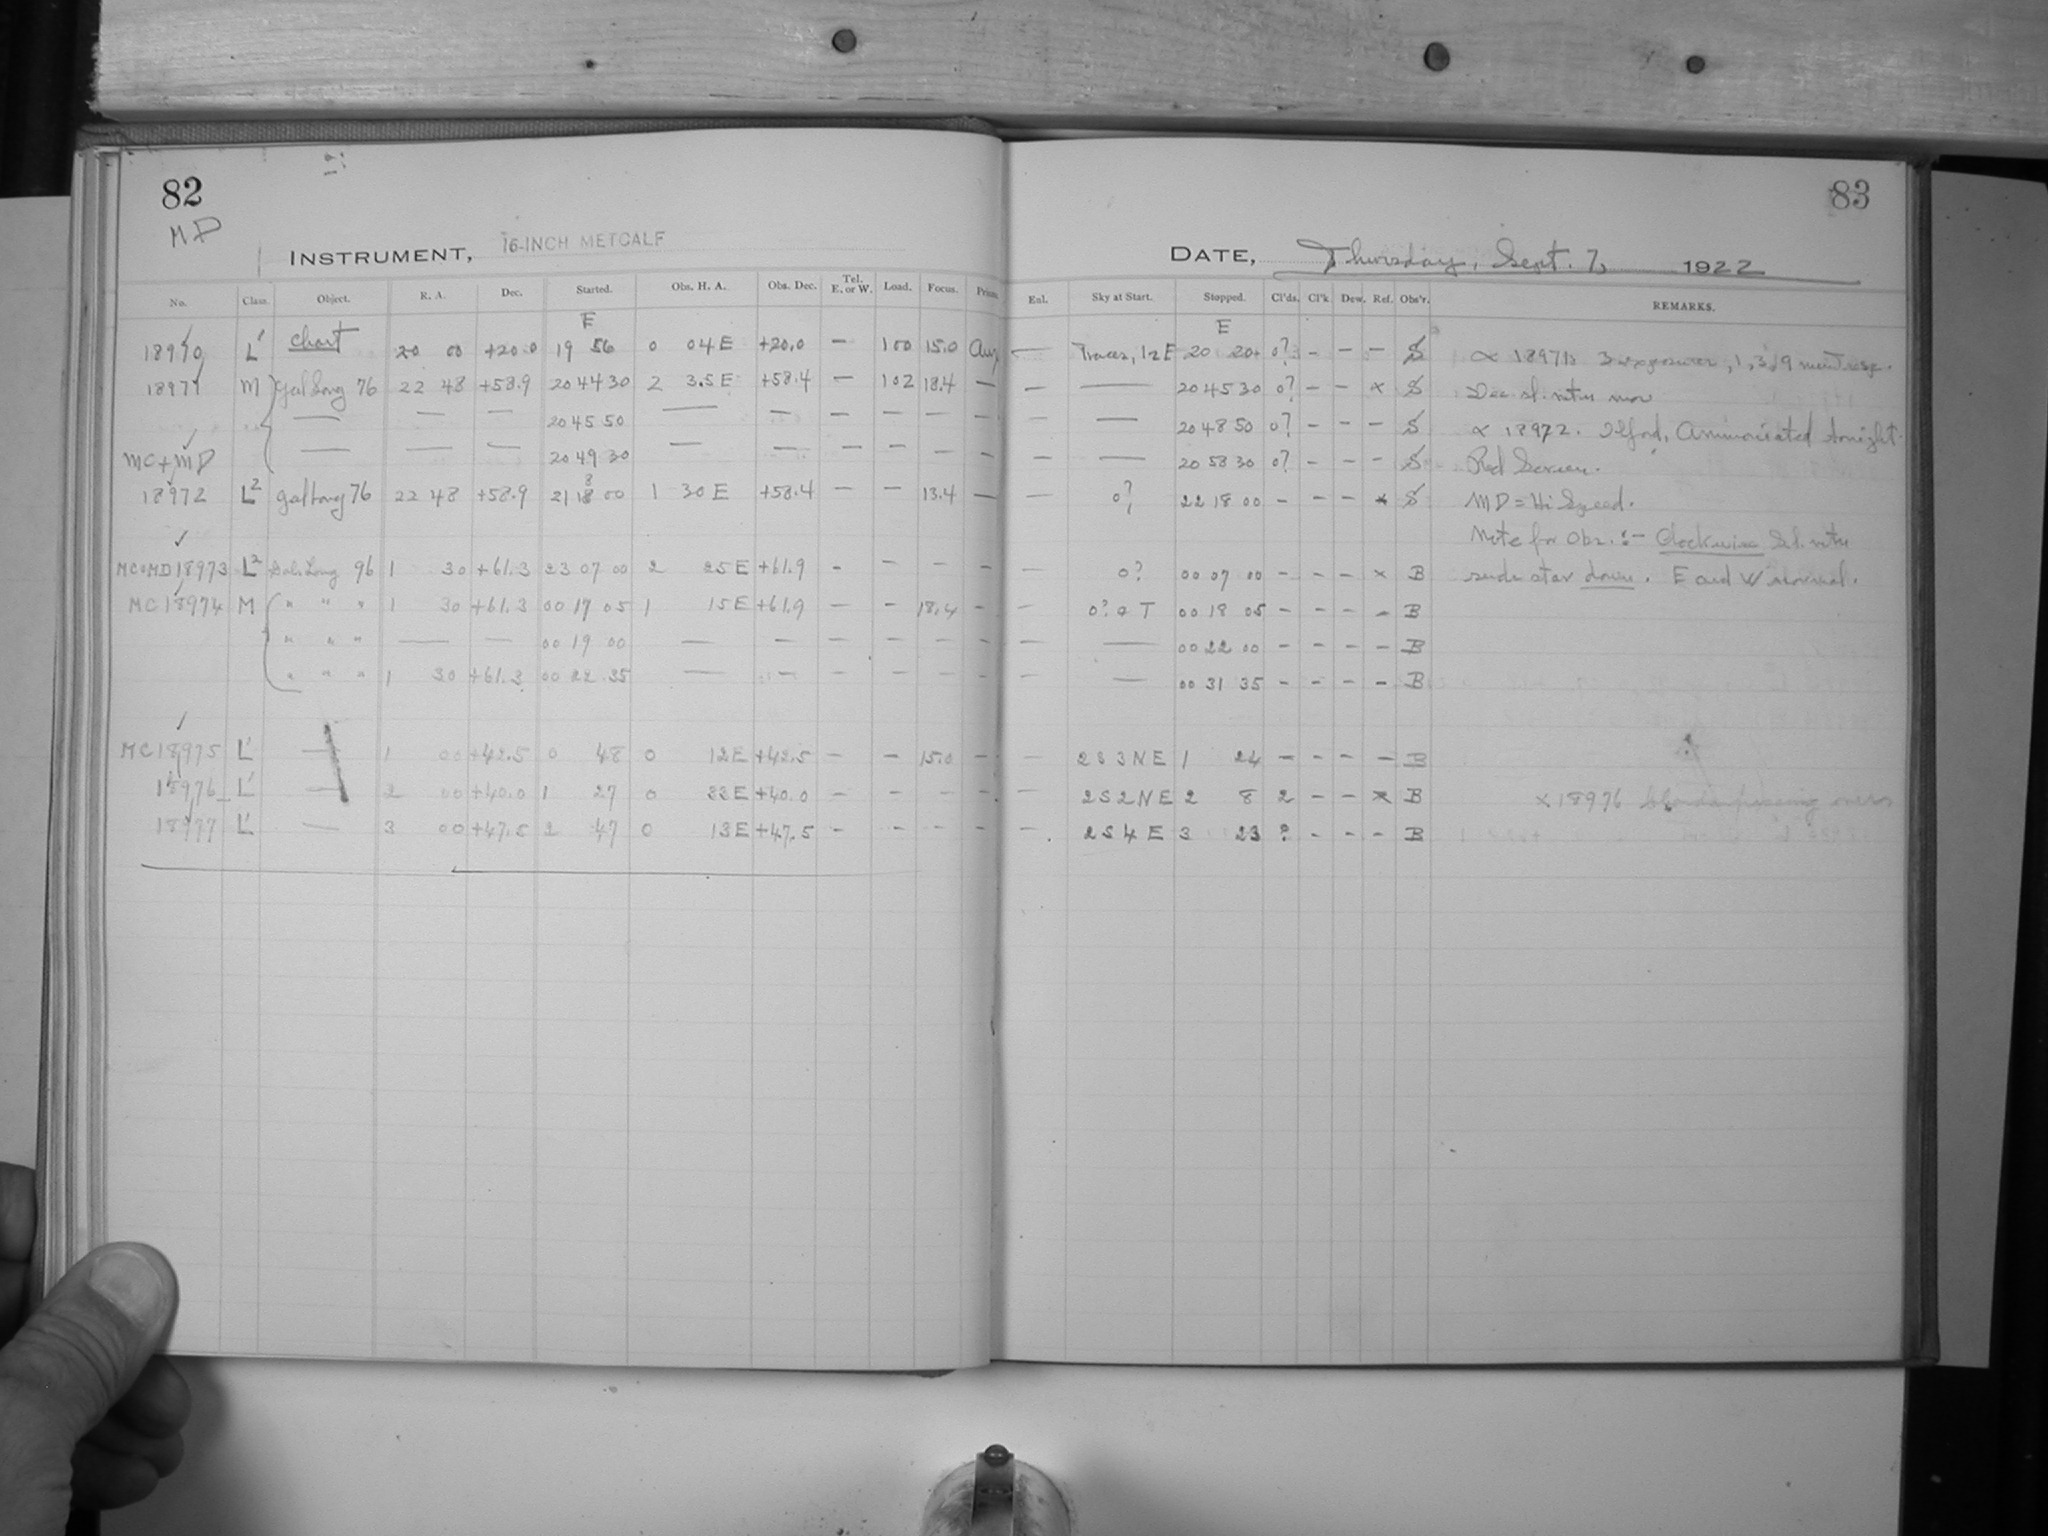 82
83
MD
INSTRUMENT, 16-INCH METCALF
DATE, Thursday, Sept. 7, 1922
No. Class. Object. R. A. Dec. Started. Obs. H. A. Obs. Dec. Tel. E. or W. Load. Focus. Prism. Enl. Sky at Start. Stopped. Cl'ds. Cl'k. Dew. Ref. Obs'r. REMARKS.
F E
18970 L' Chart 20 00 +20.0 19 56 0 04 E +20.0 — 100 15.0 — Traces, 12 E 20 20+ 0? - — — S
∝ 18971. 3 exposures, 1, 3, 9 min
18971 M Gal Long 76 22 48 +58.9 20 44 30 2 3.5 E +58.4 — 102 18.4 — — — 20 45 30 0? - - x S Dec. sl.
— — — 20 45 50 — — — — — — — — 20 48 50 0? - - - S ∝ 18972. Ilford, Ammoniated tonight.
MC+MD — — — 20 49 30 — — — — — — — — 20 58 30 0? - - - S Red Screen.
18972 L² Gal Long 76 22 48 +58.9 21 18 00 1 30 E +58.4 — — 13.4 — — 0? 22 18 00 - - - x S MD = Hi Speed.
Note for Obs. :- Clockwise Sl.
MC+MD 18973 L² Gal. Long 96 1 30 +61.3 23 07 00 2 25 E +61.9 - - - - — 0? 00 07 00 - - - x B star down. E and W normal.
MC 18974 M " " " 1 30 +61.3 00 17 05 1 15 E +61.9 — - 18.4 - - 0? T 00 18 05 - - - - B
" " " — — 00 19 00 — — — — — - — — 00 22 00 - - - - B
" " " 1 30 +61.3 00 22 35 — — — — — - — — 00 31 35 - - - - B
MC 18975 L' — 1 00 +42.5 0 48 0 12 E +42.5 — - 15.0 - — 2 S 3 N E 1 24 - - - - B
18976 L' — 2 00 +40.0 1 27 0 33 E +40.0 - - - - — 2 S 2 N E 2 8 2 - - x B x 18976 over
18977 L' — 3 00 +47.5 2 47 0 13 E +47.5 - - - - — 2 S 4 E 3 23 ? - - - B